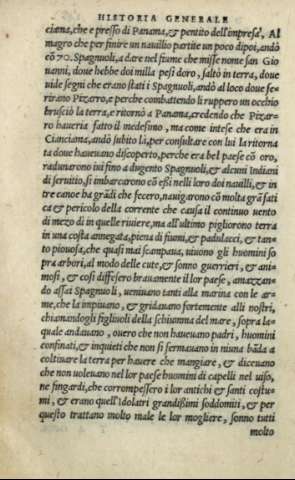 HISTORIA GENERALE
ciama, che e presso di Panama, & pentito dell'impresa', Al
magro che per finire un navilio partite un poco dipoi, andò
cō 70. Spagnuoli, a dare nel fiume che misse nome san Gio
uanni, doue hebbe doi milla pesi doro, saltò in terra, doue
uide segni che erano stati i Spagnuoli, andò al loco doue fe-
rirano Pizarro, e perche combattendo li ruppero un occhio
brusciò la terra, e ritornò a Panama, credendo che Pizar-
ro haueria fatto il medesimo, ma come intese che era in
Cianciama, andò subito là, per consultare con lui la ritorna
ta doue haueuano discoperto, perche era bel paese cō oro,
radunarono iui fino a dugento Spagnuoli, & alcuni Indiani
di seruitio, si imbarcarono cō essi nelli loro doi nauilli, & in
tre canoe ha grādi che fecero, nauigrarono cō molta grā fati
ca & pericolo della corrente che causa il continuo uento
di mezo di in quelle riuiere, ma all'ultimo pigliorono terra
in una costa annegata, piena di fiumi, & padulacci, & tan-
to piouosa, che quasi mai scampaua, uiuono gli huomini so
pra arbori, al modo delle cute, & sonno guerrieri, & ani-
mosi, & cosi diffesero brauamente il lor paese, amazzan-
do assai Spagnuoli, ueniuano tanti alla marina con le ar-
me, che la impiuano, & gridauano fortemente alli nostri,
chiamandogli figliuoli della schiumma del mare, sopra la-
quale andauano, ouero che non haueuano padri, huomini
confinati, & inquieti che non si fermauano in niuna bāda a
coltiuare la terra per hauere che mangiare, & diceuano
che non uoleuano nel lor paese huomini di capelli nel uiso,
ne fingardi, che corrompessero i lor antichi & santi costu-
mi, & erano quell'Idolatri grandissimi soddomiti, & per
questo trattano molto male le lor mogliere, sonno tutti
molto